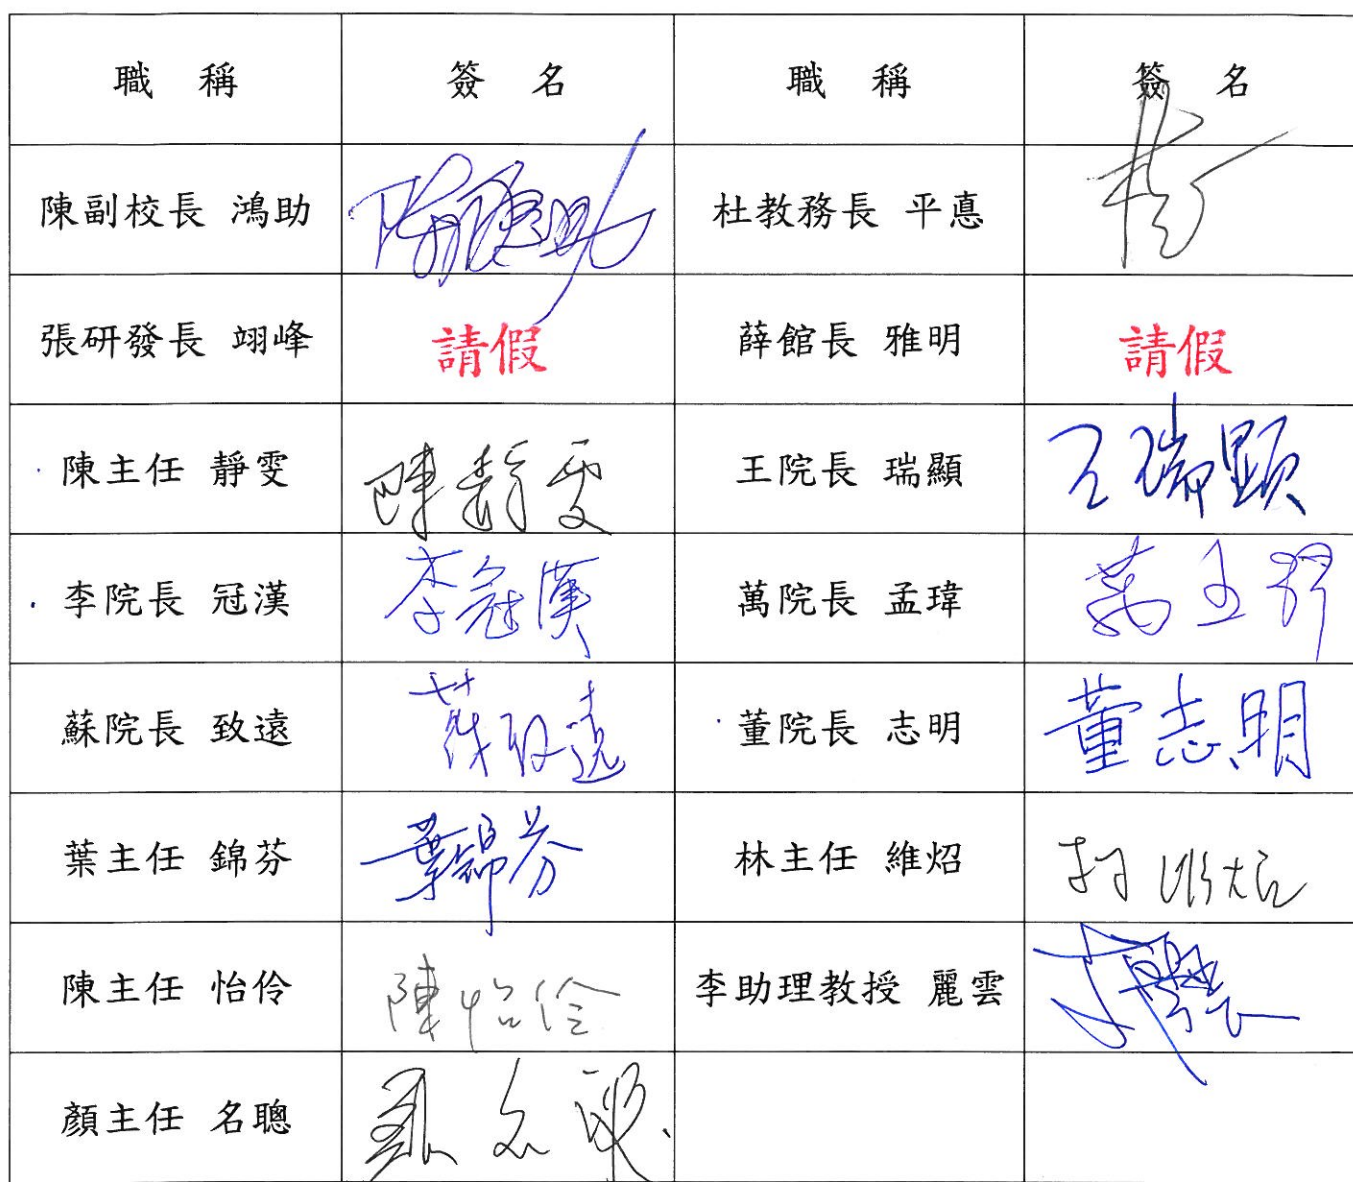 職 稱 簽 名 職 稱 簽 名
陳副校長 鴻助 陳鴻助 杜教務長 平悳
張研發長 翊峰 請假 薛館長 雅明 請假
陳主任 靜雯 陳靜雯 王院長 瑞顯 王瑞顯
李院長 冠漢 李冠漢 萬院長 孟瑋 萬孟瑋
蘇院長 致遠 蘇致遠 董院長 志明 董志明
葉主任 錦芬 葉錦芬 林主任 維炤 林維炤
陳主任 怡伶 陳怡伶 李助理教授 麗雲
顏主任 名聰 顏名聰